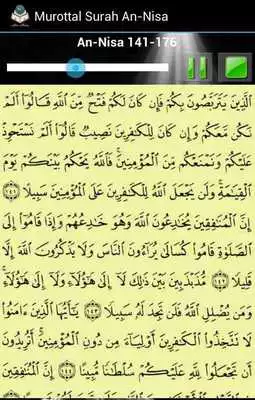 Murottal Surah An-Nisa
An-Nisa 141-176
ٱلَّذِينَ يَتَرَبَّصُونَ بِكُمْ فَإِن كَانَ لَكُمْ فَتْحٌ مِّنَ ٱللَّهِ قَالُوٓا۟ أَلَمْ
نَكُن مَّعَكُمْ وَإِن كَانَ لِلْكَـٰفِرِينَ نَصِيبٌ قَالُوٓا۟ أَلَمْ نَسْتَحْوِذْ
عَلَيْكُمْ وَنَمْنَعْكُم مِّنَ ٱلْمُؤْمِنِينَ ۚ فَٱللَّهُ يَحْكُمُ بَيْنَكُمْ يَوْمَ
ٱلْقِيَـٰمَةِ ۗ وَلَن يَجْعَلَ ٱللَّهُ لِلْكَـٰفِرِينَ عَلَى ٱلْمُؤْمِنِينَ سَبِيلًا ١٤١
إِنَّ ٱلْمُنَـٰفِقِينَ يُخَـٰدِعُونَ ٱللَّهَ وَهُوَ خَـٰدِعُهُمْ وَإِذَا قَامُوٓا۟ إِلَى
ٱلصَّلَوٰةِ قَامُوا۟ كُسَالَىٰ يُرَآءُونَ ٱلنَّاسَ وَلَا يَذْكُرُونَ ٱللَّهَ إِلَّا
قَلِيلًا ١٤٢ مُّذَبْذَبِينَ بَيْنَ ذَٰلِكَ لَآ إِلَىٰ هَـٰٓؤُلَآءِ وَلَآ إِلَىٰ هَـٰٓؤُلَآءِ ۚ
وَمَن يُضْلِلِ ٱللَّهُ فَلَن تَجِدَ لَهُۥ سَبِيلًا ١٤٣ يَـٰٓأَيُّهَا ٱلَّذِينَ ءَامَنُوا۟
لَا تَتَّخِذُوا۟ ٱلْكَـٰفِرِينَ أَوْلِيَآءَ مِن دُونِ ٱلْمُؤْمِنِينَ ۚ أَتُرِيدُونَ
أَن تَجْعَلُوا۟ لِلَّهِ عَلَيْكُمْ سُلْطَـٰنًا مُّبِينًا ١٤٤ إِنَّ ٱلْمُنَـٰفِقِينَ